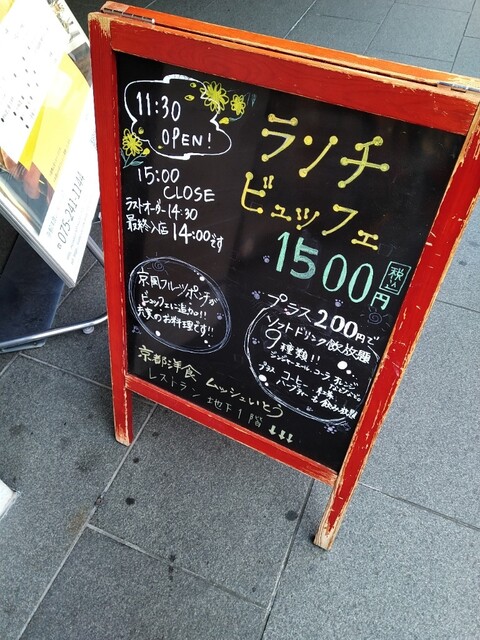 11:30
OPEN!
15:00
CLOSE
ラストオーダー14:30
最終入店 14:00です
ランチ
ビュッフェ
1500円 税込
京風フルーツポンチが
ビュッフェに追加!!
充実のお料理です!!
プラス200円で
ソフトドリンク飲放題
9種類!!
ジンジャーエール、コーラ、オレンジ
などなど。
プラス コーヒー 紅茶
ハーブティーも飲み放題
京都洋食 ムッシュいとう
レストラン 地下1階 ↓↓↓
075-241-1144